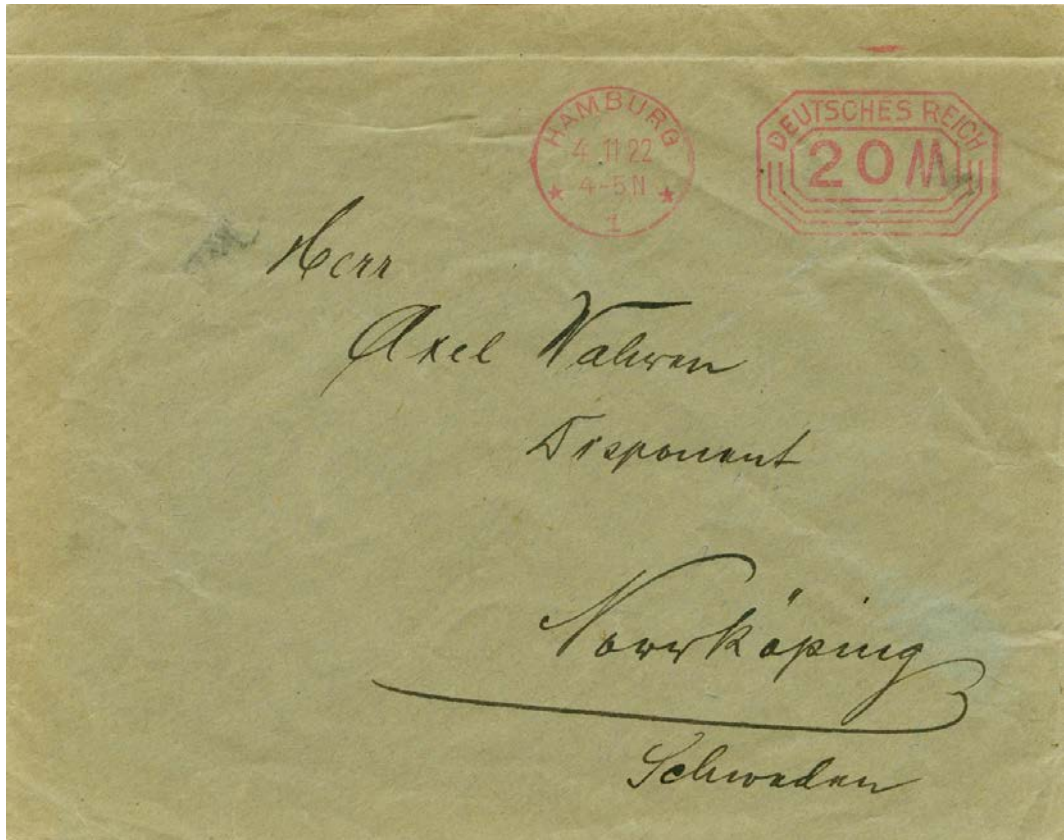 HAMBURG
4. 11 22
4-5 N
1
DEUTSCHES REICH
20 M
Herr
Axel Wahren
Disponent
Norrköping
Schweden